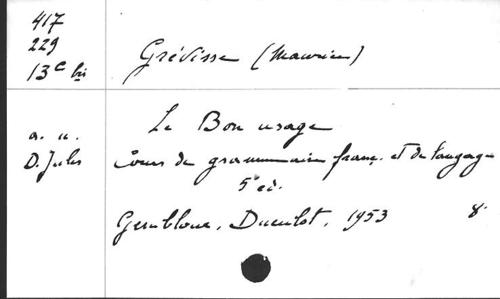 417
229
13C bis
Grévisse (Maurice)
a. u.
D. Jules
Le Bon usage
Cours de grammaire franç. et de langage
5e éd.
Gembloux, Duculot, 1953 8°